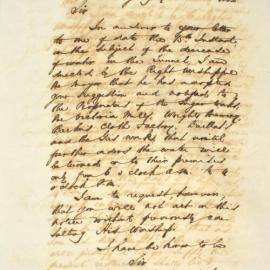 Sir
In answer to your letter
to me of date the 15th Instant
on the subject of the decrease
of water in the Tunnel, I am
directed by the Right Worshipful
the Mayor that he has adopted
your suggestion and notified to
the Proprietors of the Sugar Works,
the Victoria Mills, Wright
Cloth Factory,
and the Gas works that until
further orders the water will
be turned on to their premises
only from 6 o'clock a.m. to 6
o'clock P.M.
I am to request however,
that you will not act on this
notice without previously con
sulting His Worship.
I have the honor to be
Sir